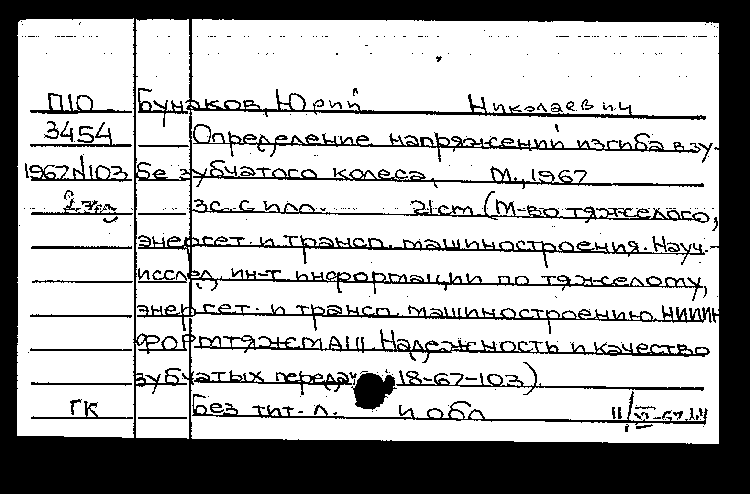 П10 Бунаков, Юрий Николаевич
3454 Определение напряжений изгиба в зу-
1967N103 бе зубчатого колеса. М., 1967
2 экз 3с. с илл. 21cm (М-во тяжелого,
энергет. и трансп. машиностроения. Науч.-
исслед. ин-т информации по тяжелому,
энергет. и трансп. машиностроению. НИИИН
ФОРМТЯЖМАШ. Надежность и качество
зубчатых передач 18-67-103).
ГК Без тит. л. и обл